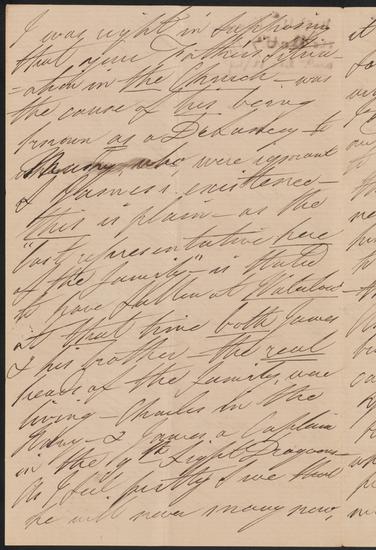 I was right in supposing
that your Father's situa-
-ation in the Church - was
the cause of his being
known as a Delancey - to
many, who were ignorant
of James's existence -
this is plain - as the
"last representative here
of the family" - is stated
to have fallen at Waterloo -
at that time both James
& his brother - the real
heads of the family, were
living - Charles in the
Navy - & James, a Captain
in the Light Dragoons -
As I feel pretty sure that
he will never marry now,